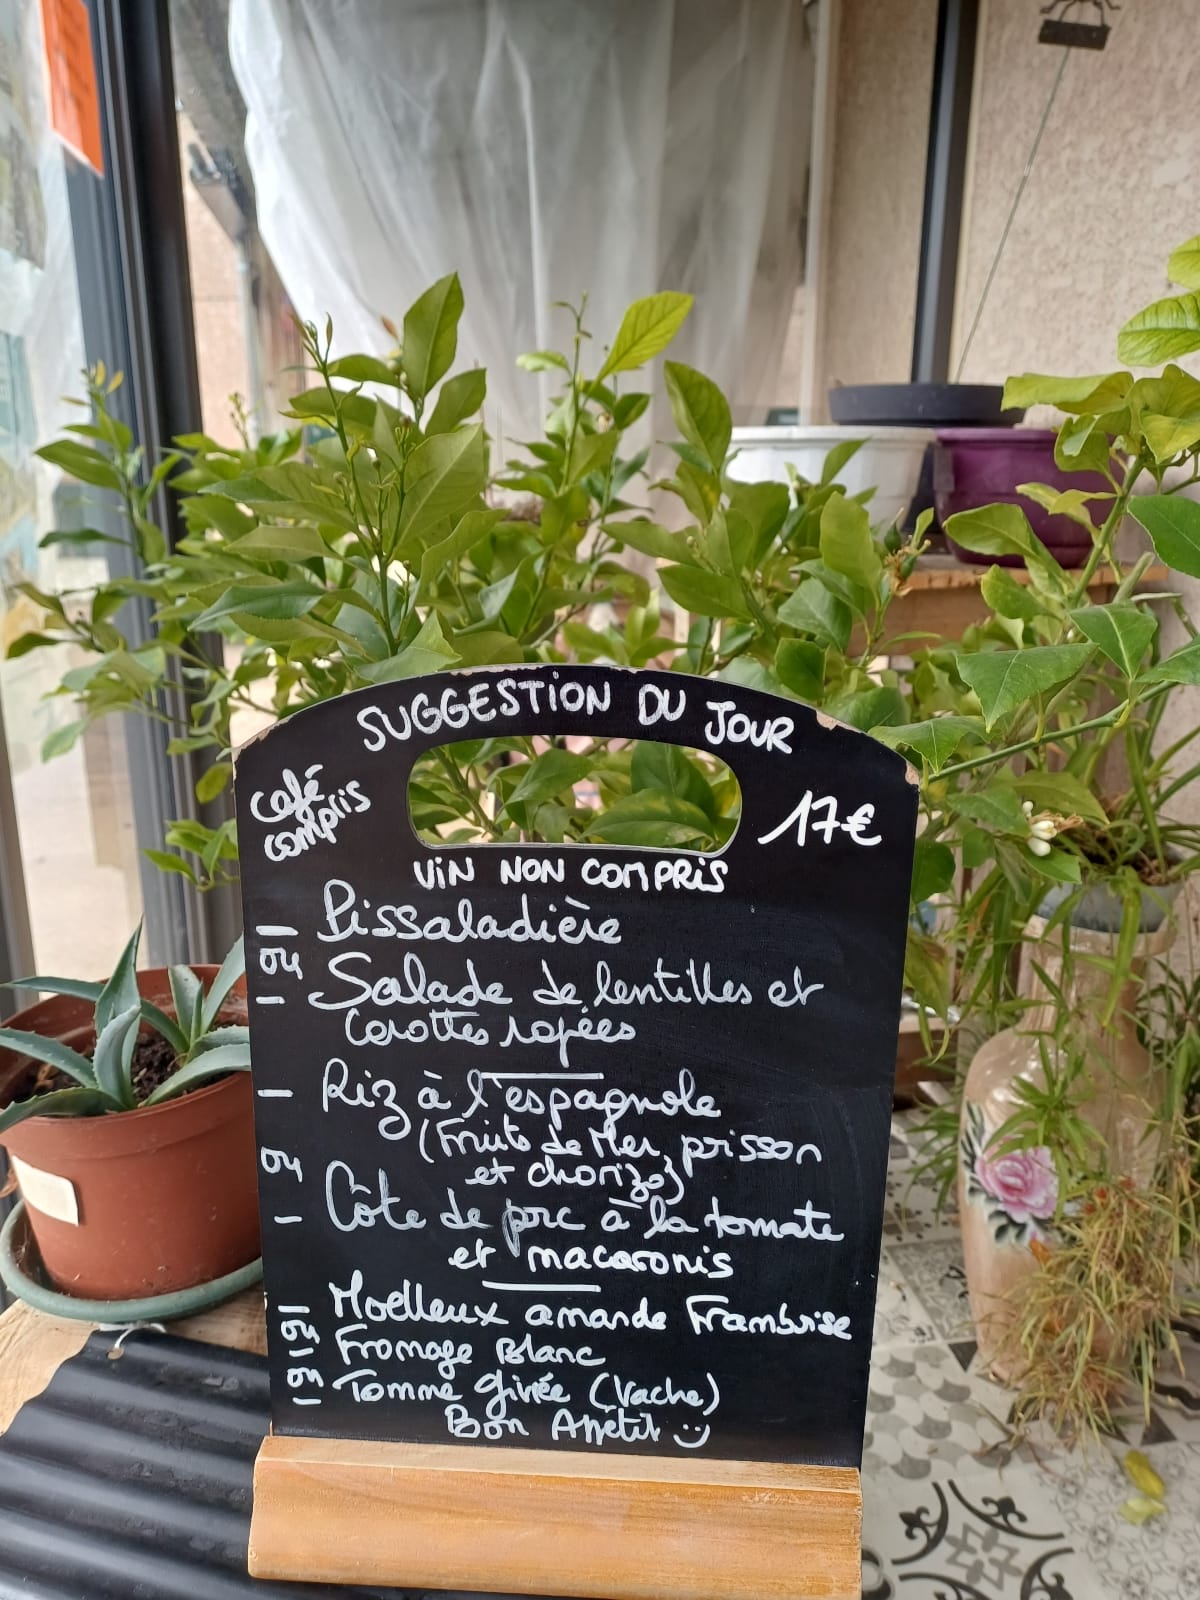 SUGGESTION DU JOUR
café
compris
17€
VIN NON COMPRIS
- Pissaladière
ou
- Salade de lentilles et
carottes rapées
- Riz à l'espagnole
(Fruits de Mer, poisson
et chorizo)
ou
- Côte de porc à la tomate
et macaronis
- Moelleux amande Framboise
ou
- Fromage Blanc
ou
- Tomme givrée (Vache)
Bon Appétit :)